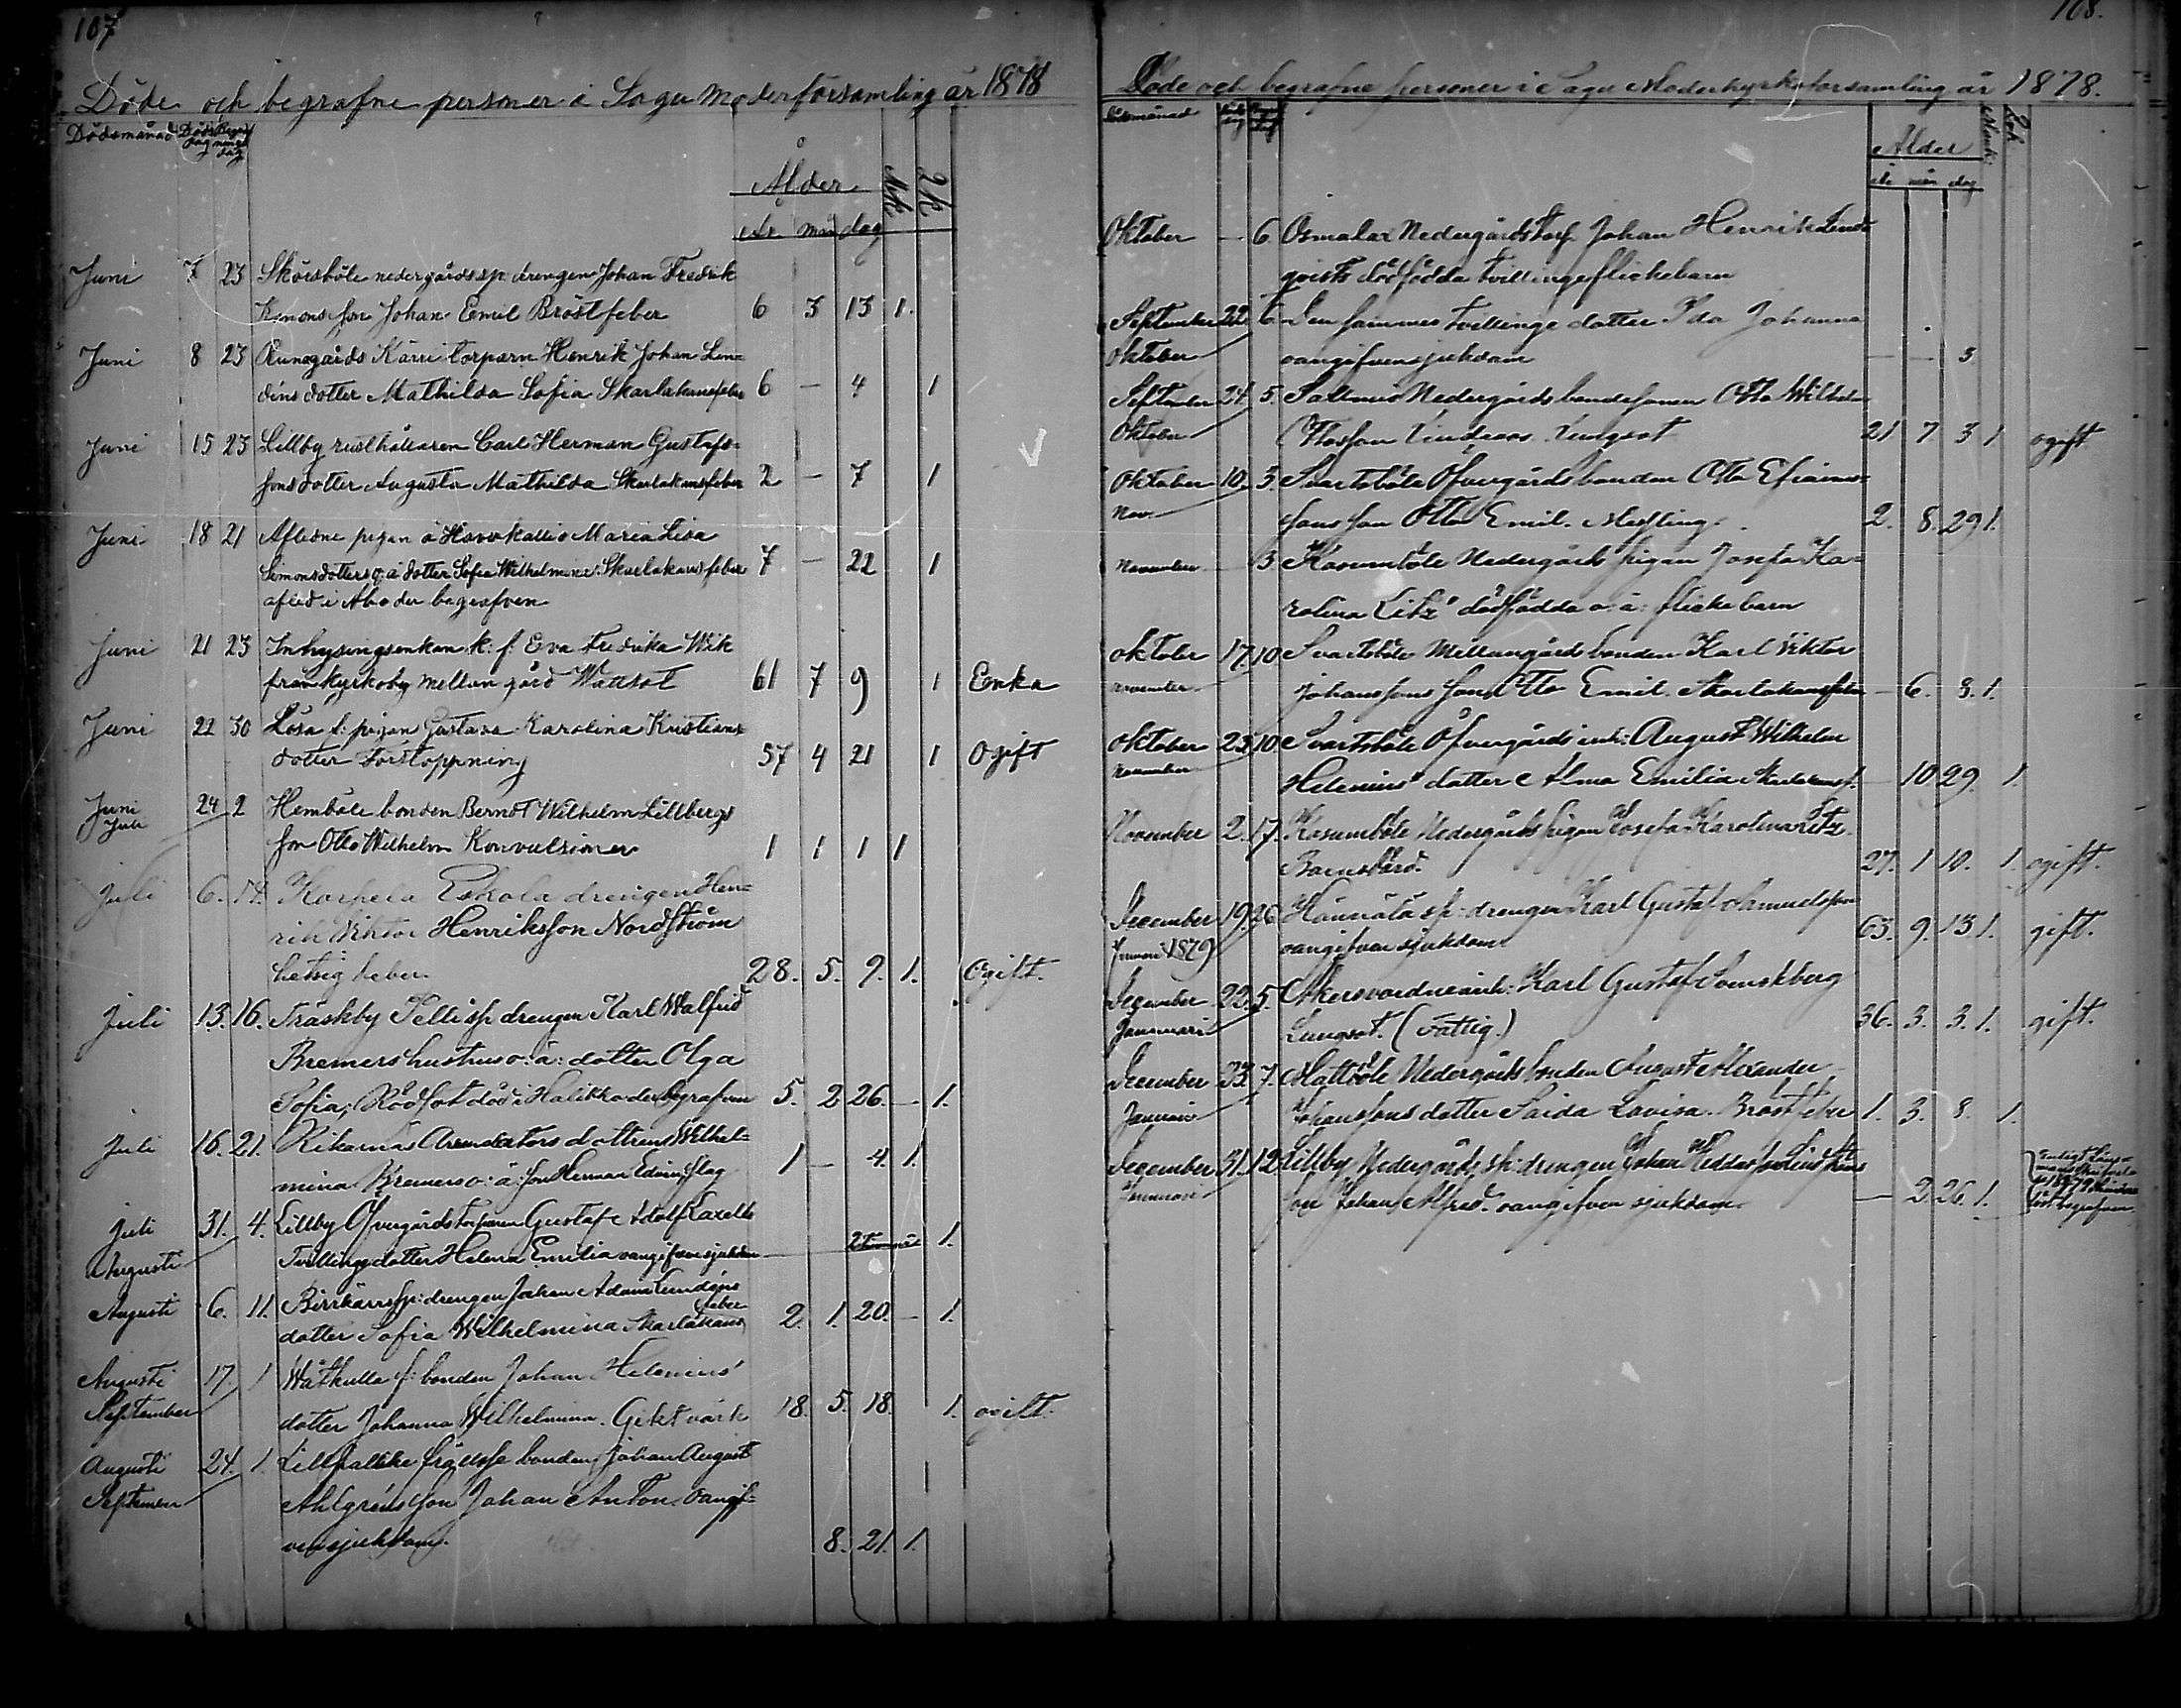 107
Döde och begrafne personer i Sagu Moderförsamling år 1878
Dödsmånad Döds dag Begrafnings dag
Ålder Mk Qk
År mån dag
Juni 7 23 Skörsböle nedergårds sp: drengen Johan Fredrik
Simons son Johan Emil Bröstfeber 6 3 13 1.
Juni 8 23 Runagårds Kärri torparn Henrik Johan Lin=
déns dotter Mathilda Sofia Skarlakansfeber 6 — 4 1
Juni 15 23 Lillby rusthållaren Carl Herman Gustafs=
sons dotter Augusta Mathilda Skarlakansfeber 2 — 7 1
Juni 18 21 Aflidne pigan å Maria Lisa
Simonsdotters o: ä: dotter Sofia Wilhelmina: Skarlakansfeber 7 — 22 1
afled i Åbo der begrafven
Juni 21 23 Inhysingsenkan k: f: Eva Fredrika Wik
från Kyrkoby mellangård Wattsot 61 7 9 1 Enka
Juni 22 30 Lösa f: pigan Gustava Karolina Kristians
dotter Förstoppning 57 4 21 1 Ogift
Juni 24 2 Hemböle bonden Berndt Wilhelm Lillbergs
Juli
son Otto Wilhelm Konvulsioner 1 1 1 1
Juli 6. 14. Karpela Eskola drengen Hen=
rik Viktor Henriksson Nordström
hetsig feber. 28. 5. 9. 1. Ogift.
Juli 13. 16. Träskby Pelli sp: drengen Karl Walfrid
Bremers hustrus o: ä: dotter Olga
Sofia, Rödsot död i Halikko der begrafven 5. 2 26. — 1.
Juli 16. 21. Rikarnäs Arrendators dottrens Wilhel=
mina Bremers o: ä: son Herman Edvin, slag 1 — 4. 1.
Juli 31. 4. Lillby Öfvergårds torparen Gustaf Adolf Kaxells
Augusti
Tvillinge dotter Helena Emilia oangifven sjukdom — 2 timmar 1.
Augusti 6. 11. Birrkärrs sp: drengen Johan Adam Lundéns
dotter Sofia Wilhelmina Skarlakans feber 2. 1. 20. — 1.
Augusti 17. 1 Wåtkulla f: bonden Johan Helenius'
September
dotter Johanna Wilhelmina. Giktvärk 18. 5. 18. 1. ogift.
Augusti 24. 1. Lillpaddike frälse bonden Johan August
September
Ahlgréns son Johan Anton. Oangif=
ven sjukdom. 8. 21. 1.
108.
Döde och begrafne personer i Sagu Moderkyrkoförsamling år 1878.
Dödsmånad
Ålder
år mån dag
Oktober — 6 Osmalax Nedergårds torp: Johan Henrik Lind=
qvists dödfödda tvillinge flickebarn
September 22. 6. Den sammes tvillinge dotter Ida Johanna
Oktober
oangifven sjukdom — — 3
September 24. 5. Saltmis Nedergårds bondesonen Otto Wilhelm
Oktober
Ottosson Lindroos. Lungsot 21 7 3 1 ogift
Oktober 10. 3. Svartsböle Öfvergårds bonden Otto Efraims=
Nov.
sons son Otto Emil. Messling. 2. 8. 29 1.
November — 3 Kasumböle Nedergårds pigan Josefa Ka=
rolina Litz' dödfödda o: ä: flickebarn
Oktober 17. 10 Svartsböle Mellangårds bonden Karl Viktor
November
Johanssons son Otto Emil. Skarlakansfeber — 6. 3. 1.
Oktober 23. 10. Svartsböle Öfvergårds inh: August Wilhelm
November
Helenius' dotter Alma Emilia Skarlakansf. — 10. 29. 1.
November 2. 17. Kasumböle Nedergårds pigan Josefa Karolina Litz.
Barnsbörd. 27. 1 10. 1. ogift.
December 19. 26 Hännälä sp: drengen Karl Gustaf Samuelsson
Januari 1879
oangifven sjukdom. 63. 9. 13 1. gift.
December 22. 5. Åkersvordne inh: Karl Gustaf Svenskberg
Januari
Lungsot. (Fattig.) 36. 3. 3. 1. gift.
December 23. 7. Mattböle Nedergårds bonden August Alexander
Januari
Johanssons dotter Saida Lovisa. Bröstfeber 1. 3. 8. 1.
December 31. 12 Lillby Nedergårds sp: drengen Johan
Januari
son Johan Alfred. oangifven sjukdom. — 2. 26. 1.
Enligt Läns=
begrafven